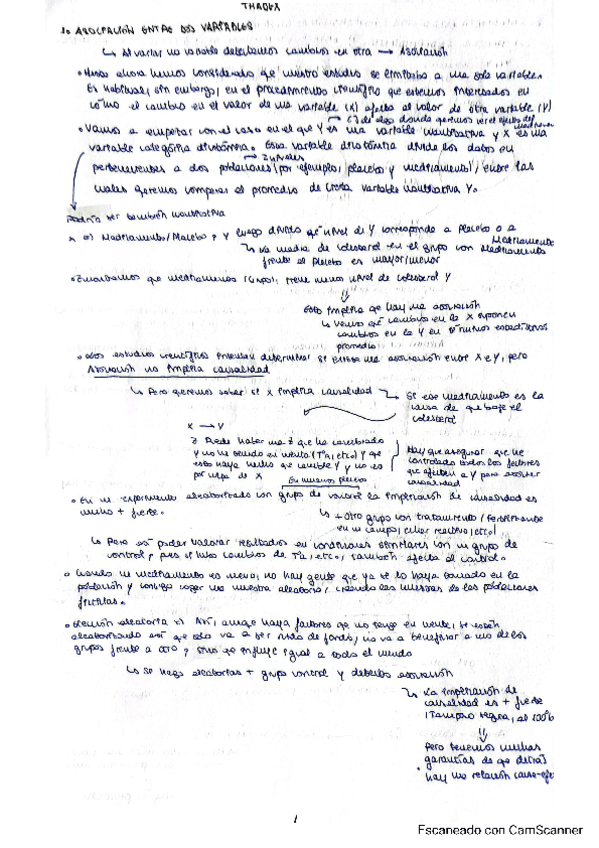 1. ASOCIACIÓN ENTRE DOS VARIABLES
↳ Al variar una variable detectamos cambios en otra → Asociación
• Hasta ahora hemos considerado que nuestro estudio se limitaba a una sola variable.
Es habitual, sin embargo, en el procedimiento científico que estemos interesados en
cómo el cambio en el valor de una variable (X) afecta al valor de otra variable (Y)
donde queremos ver el efecto del
• Vamos a empezar con el caso en el que Y es una variable cuantitativa y X es una
variable categórica dicotómica. Esta variable dicotómica divide los datos en
→ 2 niveles
pertenecientes a dos poblaciones (por ejemplo, placebo y medicamento), entre las
cuales queremos comparar el promedio de cierta variable cuantitativa Y.
Podría ser también cuantitativa
Medicamento/Placebo, y luego divido qué nivel de Y corresponde a Placebo o a
Medicamento
↳ La media de colesterol en el grupo con medicamento
frente al Placebo es mayor/menor
• que medicamento (Grupo) tiene menos nivel de colesterol Y
⇓
Esto implica que hay una asociación
↳ Vemos que cambios en la X suponen
cambios en la Y en términos
promedio
• Los estudios científicos intentan determinar si existe una asociación entre X e Y, pero
Asociación no implica causalidad
↳ Pero queremos saber si X implica causalidad → Si ese medicamento es la
causa de que baje el
colesterol
X → Y
Puede haber una Z que ha cambiado
y no he tenido en cuenta (Tª, etc.) y que
esto haya hecho que cambie Y y no es
por culpa de X
Hay que asegurar que he
controlado todos los factores
que afectan a Y para
causalidad
• En un experimento aleatorizado con grupo de control la implicación de causalidad es
mucho + fuerte.
↳ + otro grupo con tratamiento (
en un campo, etc.)
↳ Pero así poder valorar resultados en condiciones similares con un grupo de
control, pues si hubo cambios de Tª, etc., también afecta al control.
• Cuando un medicamento es nuevo, no hay gente que ya se lo haya tomado en la
población y consigo coger una muestra aleatoria, creando las muestras de las poblaciones
• Elección aleatoria Así, aunque haya factores que no tengo en cuenta, se están
aleatorizando así que esto va a ser ruido de fondo, no va a beneficiar a uno de los
grupos frente a otro, sino que influye igual a todo el mundo
↳ Si hago aleatorias + grupo control y detecto asociación
↳ La implicación de
causalidad es + fuerte
(Tampoco segura, al 100%
⇓
Pero tenemos muchas
garantías de que detrás
hay una relación causa-efe
1
Escaneado con CamScanner